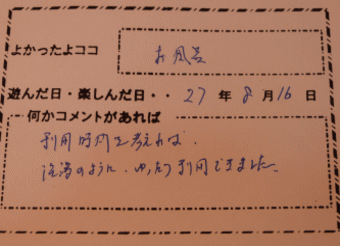 よかったよココ お風呂
遊んだ日・楽しんだ日・・ 27 年 8 月 16 日
何かコメントがあれば
利用時間を考えれば、
洗湯のように、ゆったり利用できました。